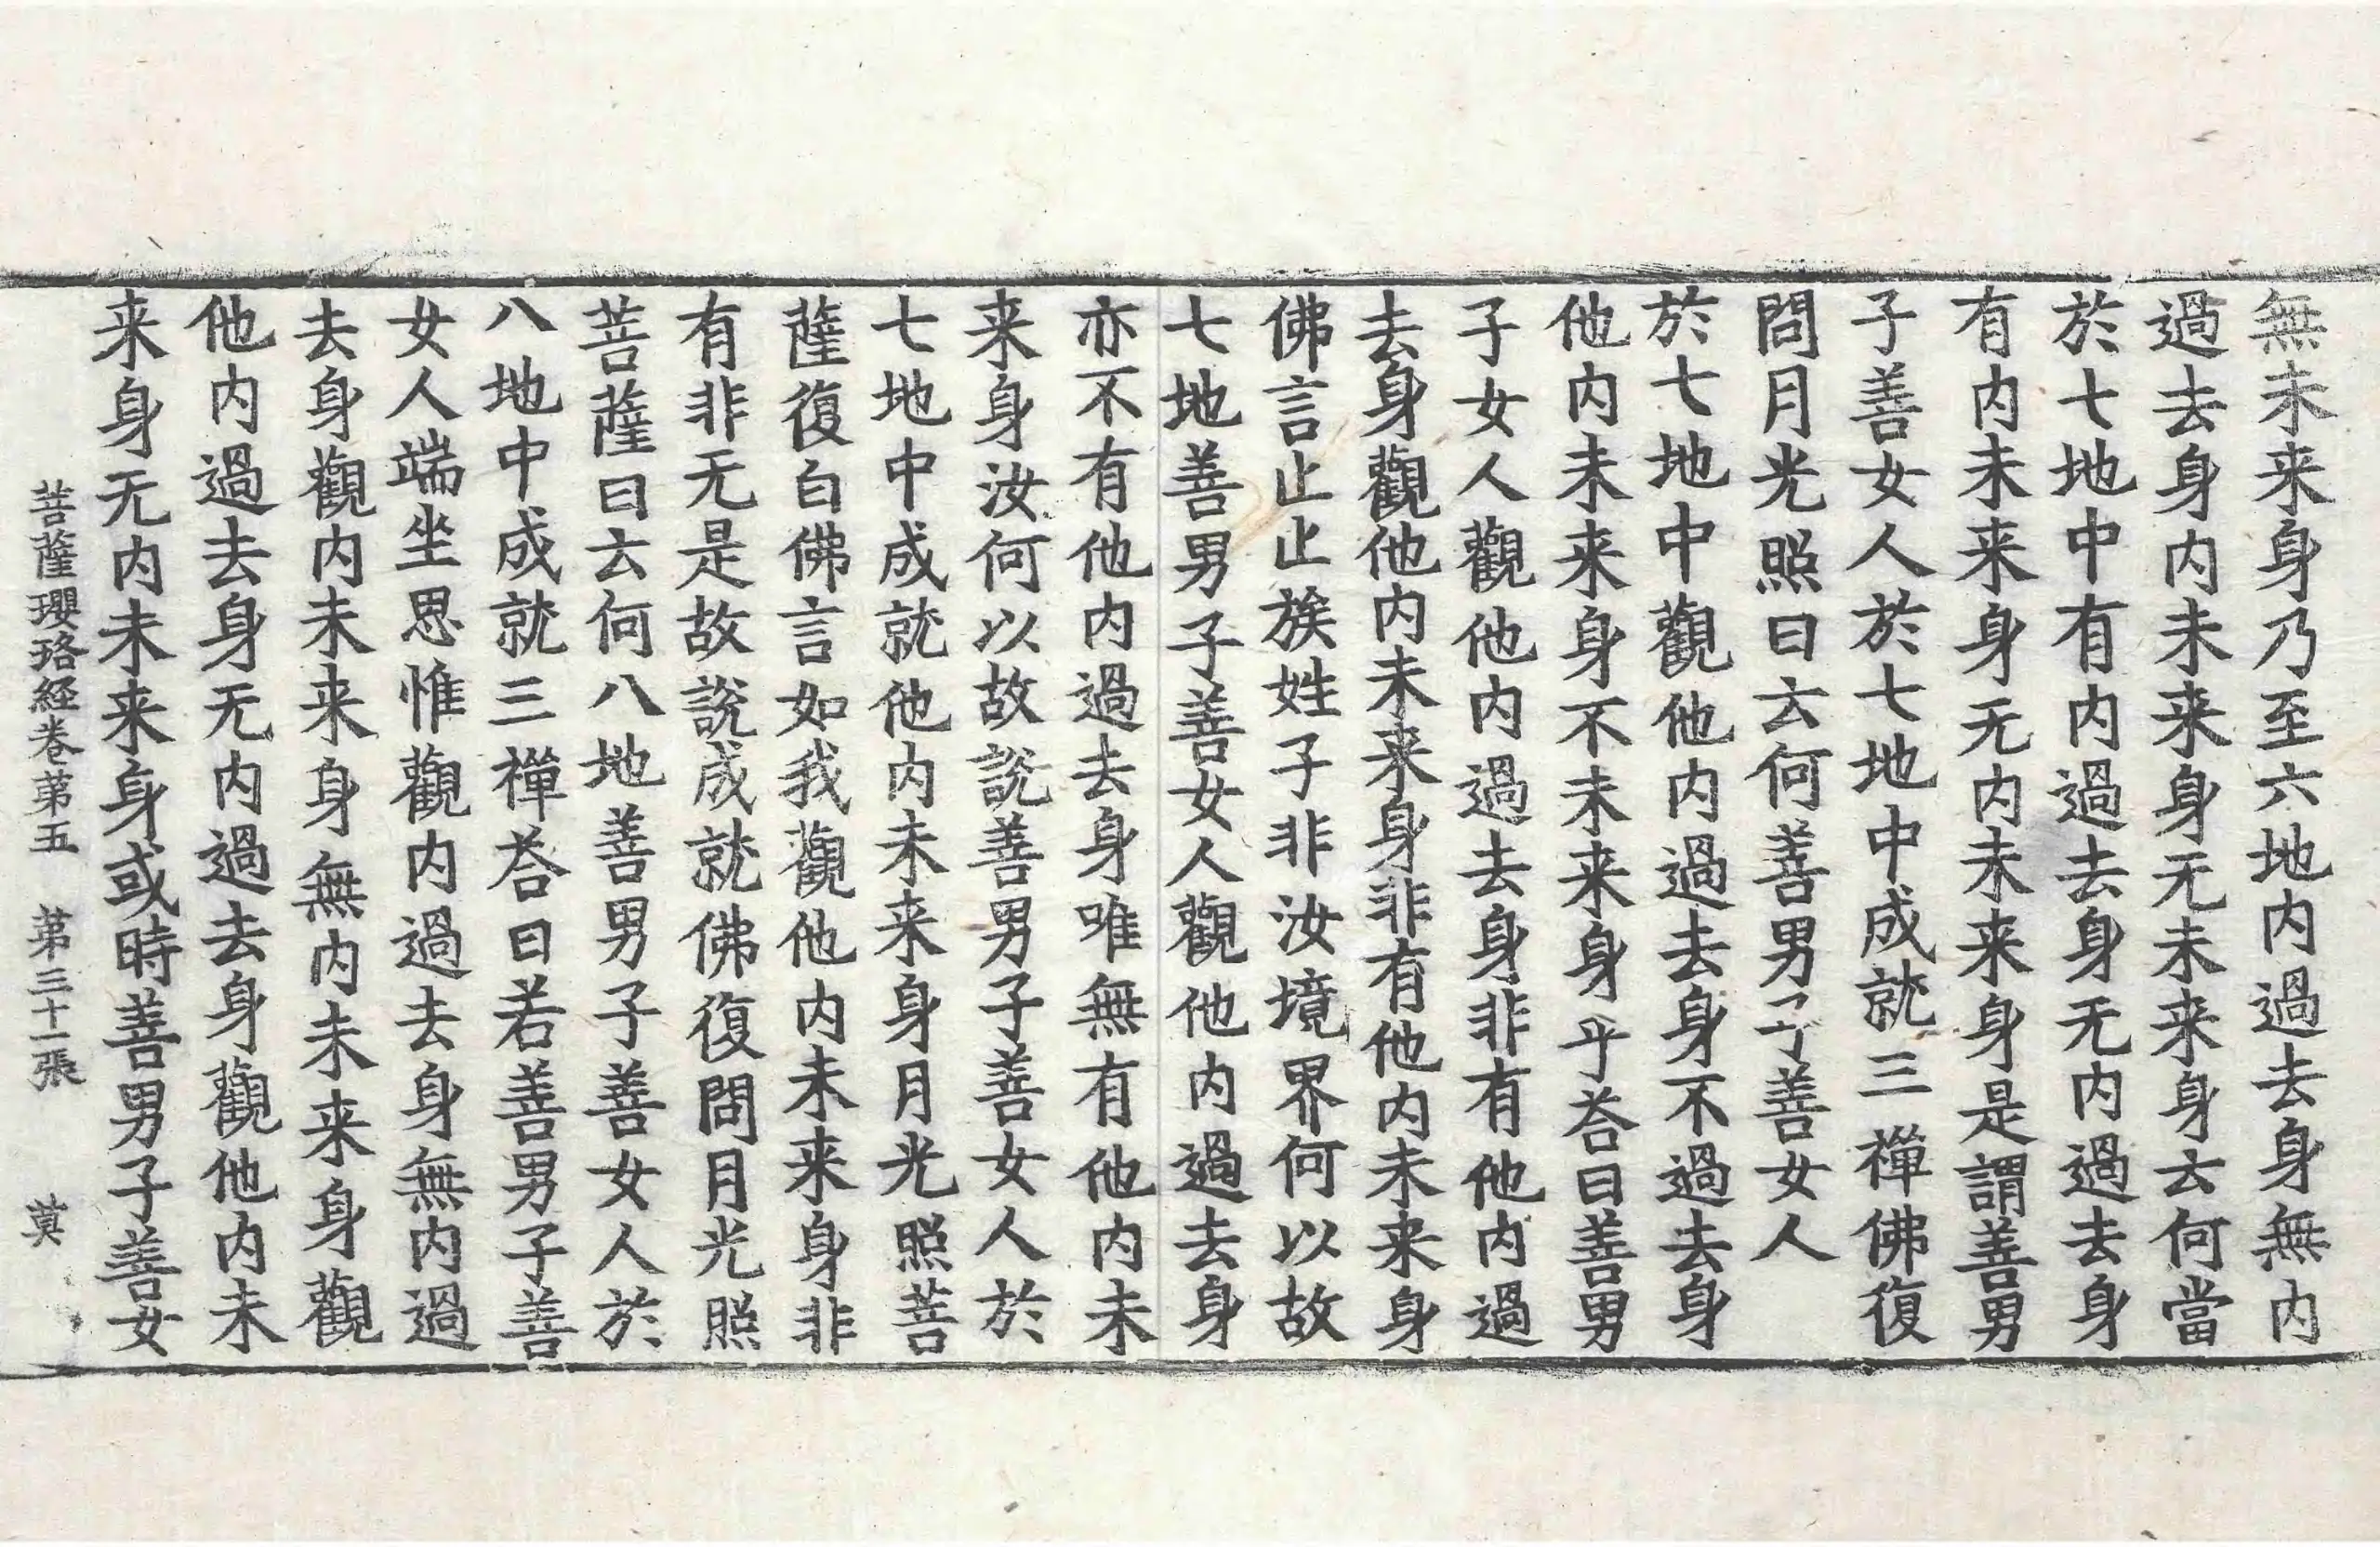 無未来身乃至六地内過去身無内
過去身内未来身无未来身云何當
於七地中有内過去身无内過去身
有内未来身无内未来身是謂善男
子善女人於七地中成就三禪佛復
問月光照曰云何善男子善女人
於七地中觀他内過去身不過去身
他内未来身不未来身乎荅曰善男
子女人觀他内過去身非有他内過
去身觀他内未来身非有他内未来身
佛言止止族姓子非汝境界何以故
七地善男子善女人觀他内過去身
亦不有他内過去身唯無有他内未
来身汝何以故說善男子善女人於
七地中成就他内未来身月光照菩
薩復白佛言如我觀他内未来身非
有非无是故說成就佛復問月光照
菩薩曰云何八地善男子善女人於
八地中成就三禪荅曰若善男子善
女人端坐思惟觀内過去身無内過
去身觀内未来身無内未来身觀
他内過去身无内過去身觀他内未
来身无内未来身或時善男子善女
菩薩瓔珞経卷第五 第三十一張 莫